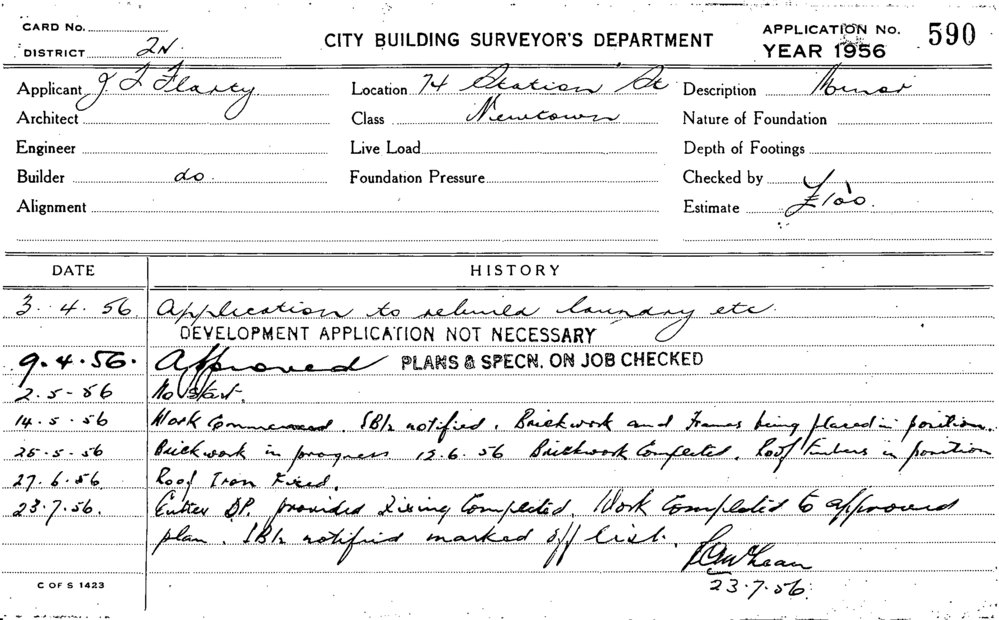 CARD No.
DISTRICT 2N.
CITY BUILDING SURVEYOR'S DEPARTMENT
APPLICATION No. 590
YEAR 1956
Applicant J L Flarty
Location 74 Station St
Description Minor
Architect
Class Newtown
Nature of Foundation
Engineer
Live Load
Depth of Footings
Builder do.
Foundation Pressure
Checked by
Alignment
Estimate £100.
DATE HISTORY
3. 4. 56 Application to rebuild laundry etc.
DEVELOPMENT APPLICATION NOT NECESSARY
9.4.56. Approved PLANS & SPECN. ON JOB CHECKED
2.5-56 No start.
14.5.56 Work Commenced. notified. Brickwork and Frames being placed in position.
25-5-56 Brickwork in progress 12.6.56 Brickwork Completed. Roof Timbers in position
27.6.56 Roof Iron Fixed.
23.7.56. DP. provided Completed. Work Completed to approved
plan. notified marked off list.
23.7.56.
C OF S 1423